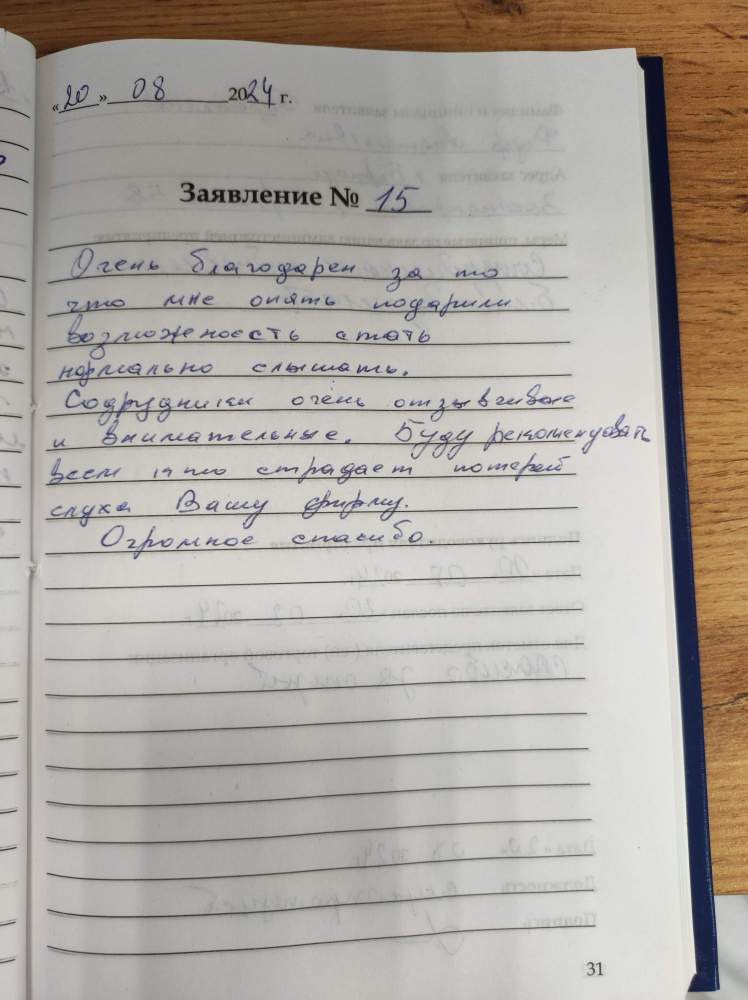 «20» 08 2024 г.
Заявление № 15
Очень благодарен за то
что мне опять подарили
возможеность стать
нормально слышать.
Содрудники очень отзывчивые
и внимательные. Буду рекомендовать
всем кто страдает потерей
слуха Вашу фирму.
Огромное спасибо.
31